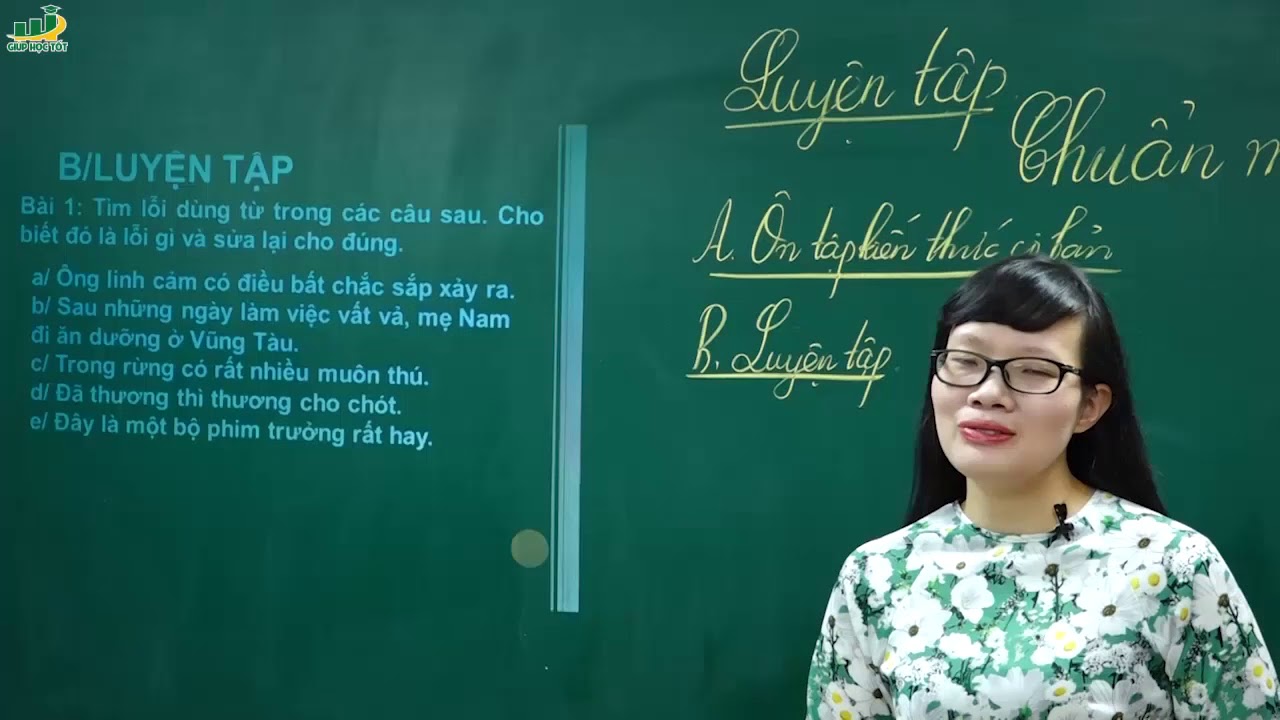 GIÚP HỌC TỐT
B/LUYỆN TẬP
Bài 1: Tìm lỗi dùng từ trong các câu sau. Cho
biết đó là lỗi gì và sửa lại cho đúng.
a/ Ông linh cảm có điều bất chắc sắp xảy ra.
b/ Sau những ngày làm việc vất vả, mẹ Nam
đi ăn dưỡng ở Vũng Tàu.
c/ Trong rừng có rất nhiều muôn thú.
d/ Đã thương thì thương cho chót.
e/ Đây là một bộ phim trưởng rất hay.
Luyện tập
Chuẩn m
A. Ôn tập kiến thức cơ bản
B. Luyện tập